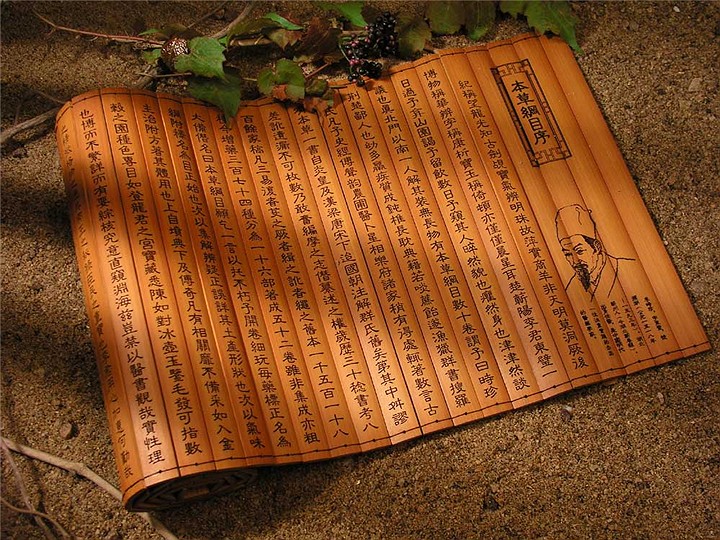 本草綱目序
紀稱望龍光知古劍覘寶氣辨明珠故萍實商羊非天明莫洞厥後
博物稱華辨字稱康析寶玉稱倚頓亦僅僅晨星耳楚蘄陽李君東璧
日過予弇山園謁予留飲數日予窺其人睟然貌也癯然身也津津然談
議也真北門以南一人解其裝無長物有本草綱目數十卷謂予曰時珍
荊楚鄙人也幼多羸疾質成鈍椎長耽典籍若啖蔗飴遂漁獵群書搜羅
凡子史經傳聲韵農圃醫卜星相樂府諸家稍有得處輒著數言古
本草一書自炎皇及漢梁唐宋下迨國朝注解群氏舊矣第其中舛謬
差訛遺漏不可枚數乃敢奮編摩之志僭纂述之權歲歷三十稔書考八
百餘家稿凡三易復者芟之厥者緝之訛者繩之舊本一千五百一十八
種今增藥三百七十四種分為一十六部著成五十二卷雖非集成亦粗
大備僭名曰本草綱目願乞一言以托不朽予開卷細玩每藥標正名為
綱附釋名為目正始也次以集解辨疑正誤詳其土產形狀也次以氣味
主治附方著其體用也上自墳典下及傳奇凡有相關靡不備采如入金
穀之園種色奪目如登龍君之宮寶藏悉陳如對冰壺玉鑒毛發可指數
也博而不繁詳而有要綜核究竟直窺淵海茲豈禁以醫書觀哉實性理